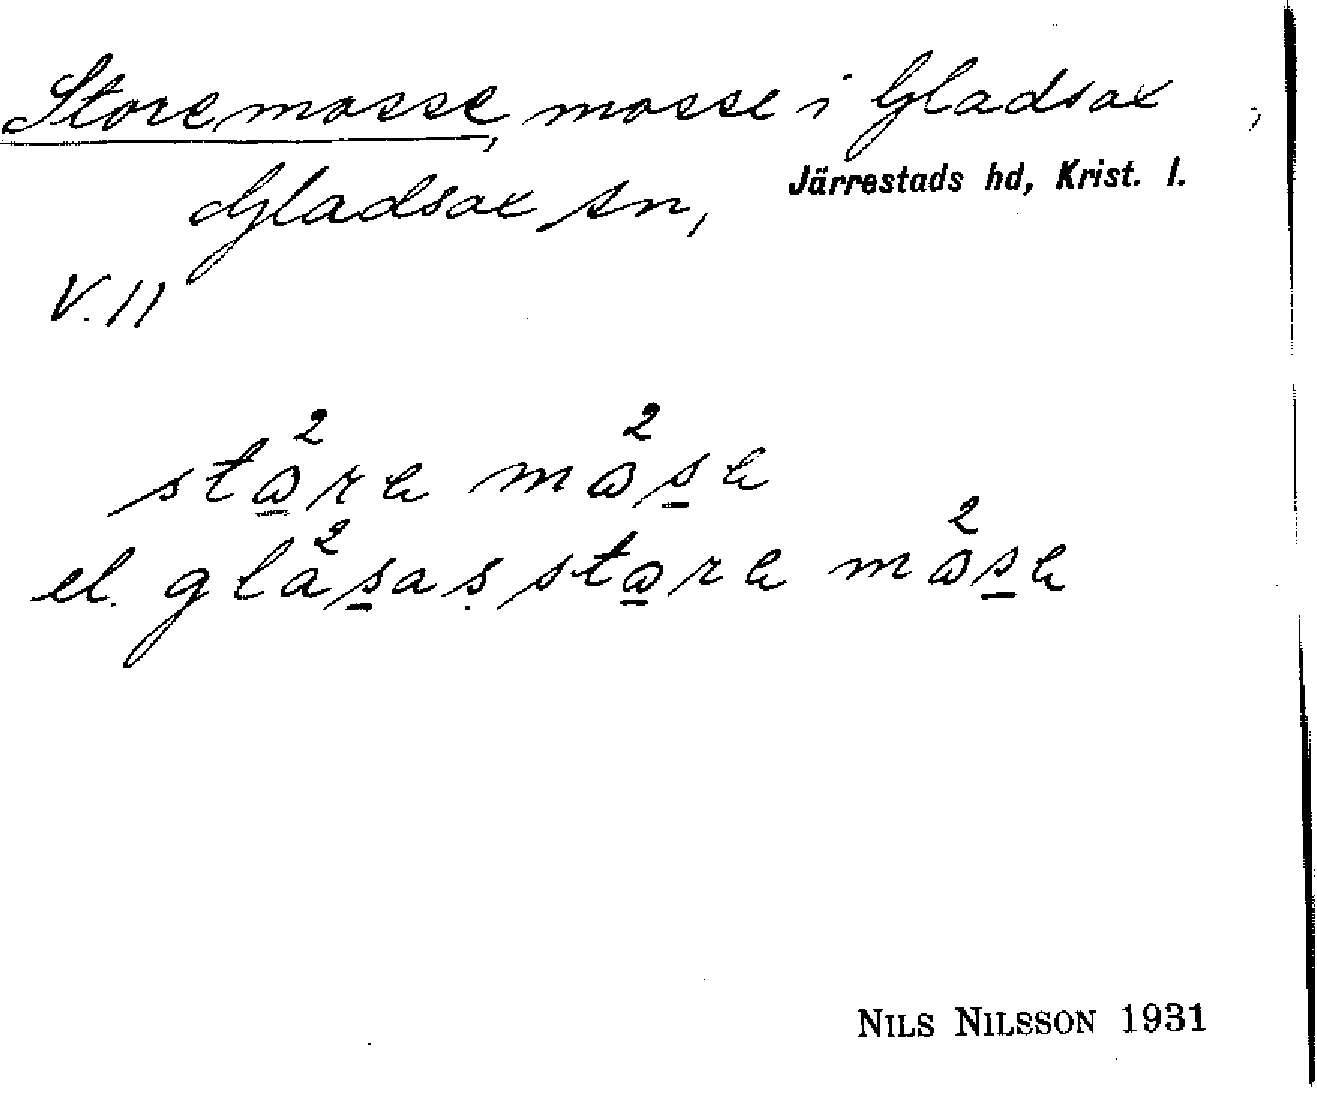 Storemosse, mosse i Gladsax,
Gladsax sn, Järrestads hd, Krist. l.
V. 11
stå²ra må²sa
el. glå²sas stara må²sa
NILS NILSSON 1931